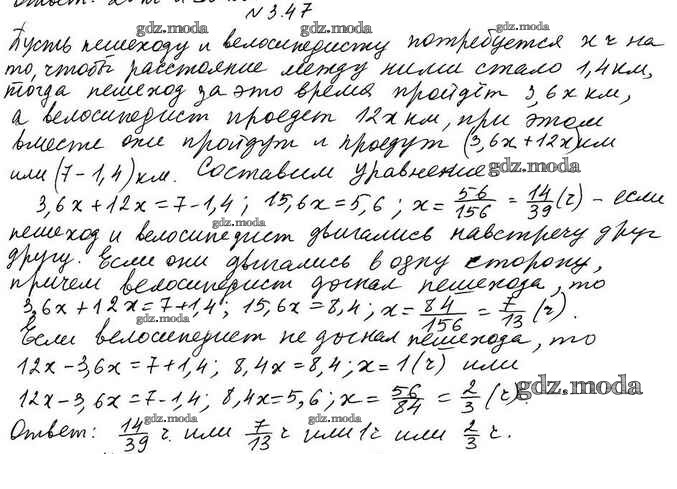 №3.47
gdz.moda gdz.moda gdz.moda
Пусть пешеходу и велосипедисту потребуется x ч на
то, чтобы расстояние между ними стало 1,4 км,
тогда пешеход за это время пройдёт 3,6x км,
а велосипедист проедет 12x км, при этом
вместе они пройдут и проедут (3,6x+12x) км
или (7-1,4) км. Составим уравнение gdz.moda
gdz.moda
3,6x+12x=7-1,4; 15,6x=5,6; x=56/156=14/39 (ч) - если
gdz.moda
пешеход и велосипедист двигались навстречу друг
другу. Если они двигались в одну сторону,
причем велосипедист догнал пешехода, то
3,6x+12x=7+1,4; 15,6x=8,4; x=84/156=7/13 (ч).
gdz.moda gdz.moda
Если велосипедист не догнал пешехода, то
12x-3,6x=7+1,4; 8,4x=8,4; x=1(ч) или
12x-3,6x=7-1,4; 8,4x=5,6; x=56/84=2/3 (ч).
gdz.moda
gdz.moda gdz.moda gdz.moda
Ответ: 14/39 ч. или 7/13 ч или 1ч или 2/3 ч.